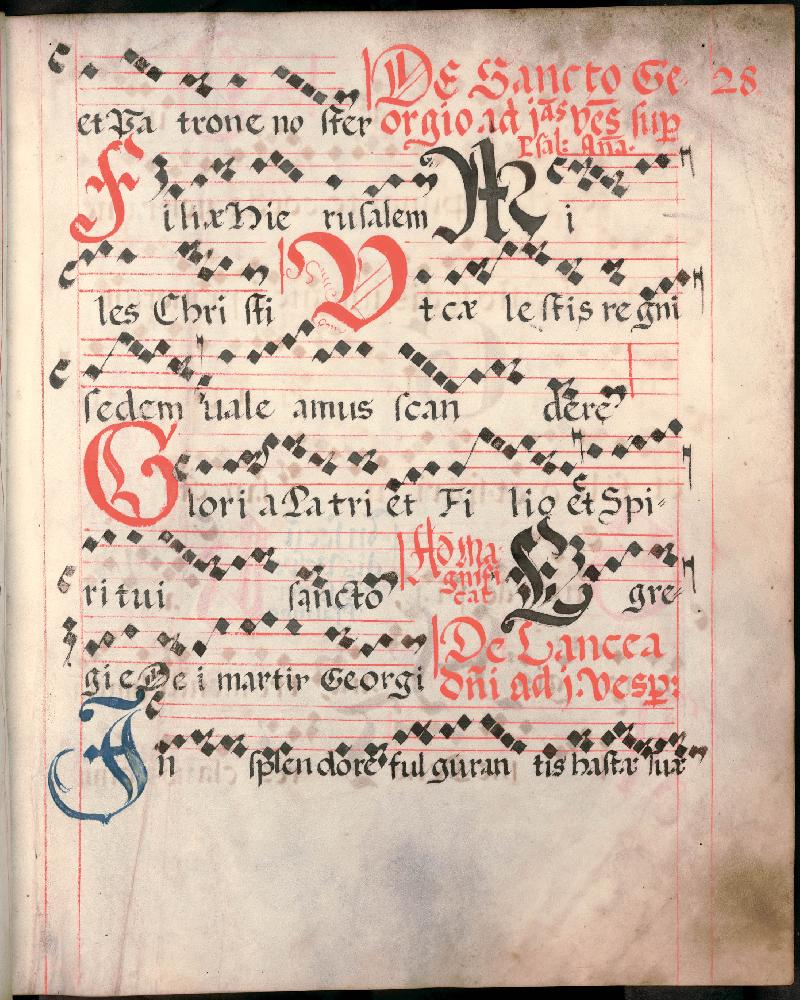 et Pa trone no ster De Sancto Ge- 28
orgio ad jas ves sup
Psal: Ana.
Filiæ Hie rusalem Mi
les Chri sti Ut cæ lestis regni
sedem uale amus scan dere
Glori a Patri et Fi lio et Spi-
ritui sancto Ad Ma
gnifi
cat Egre-
gie De i martir Georgi De Lancea
dni ad j. vesp:
In splendore fulguran tis hastæ suæ